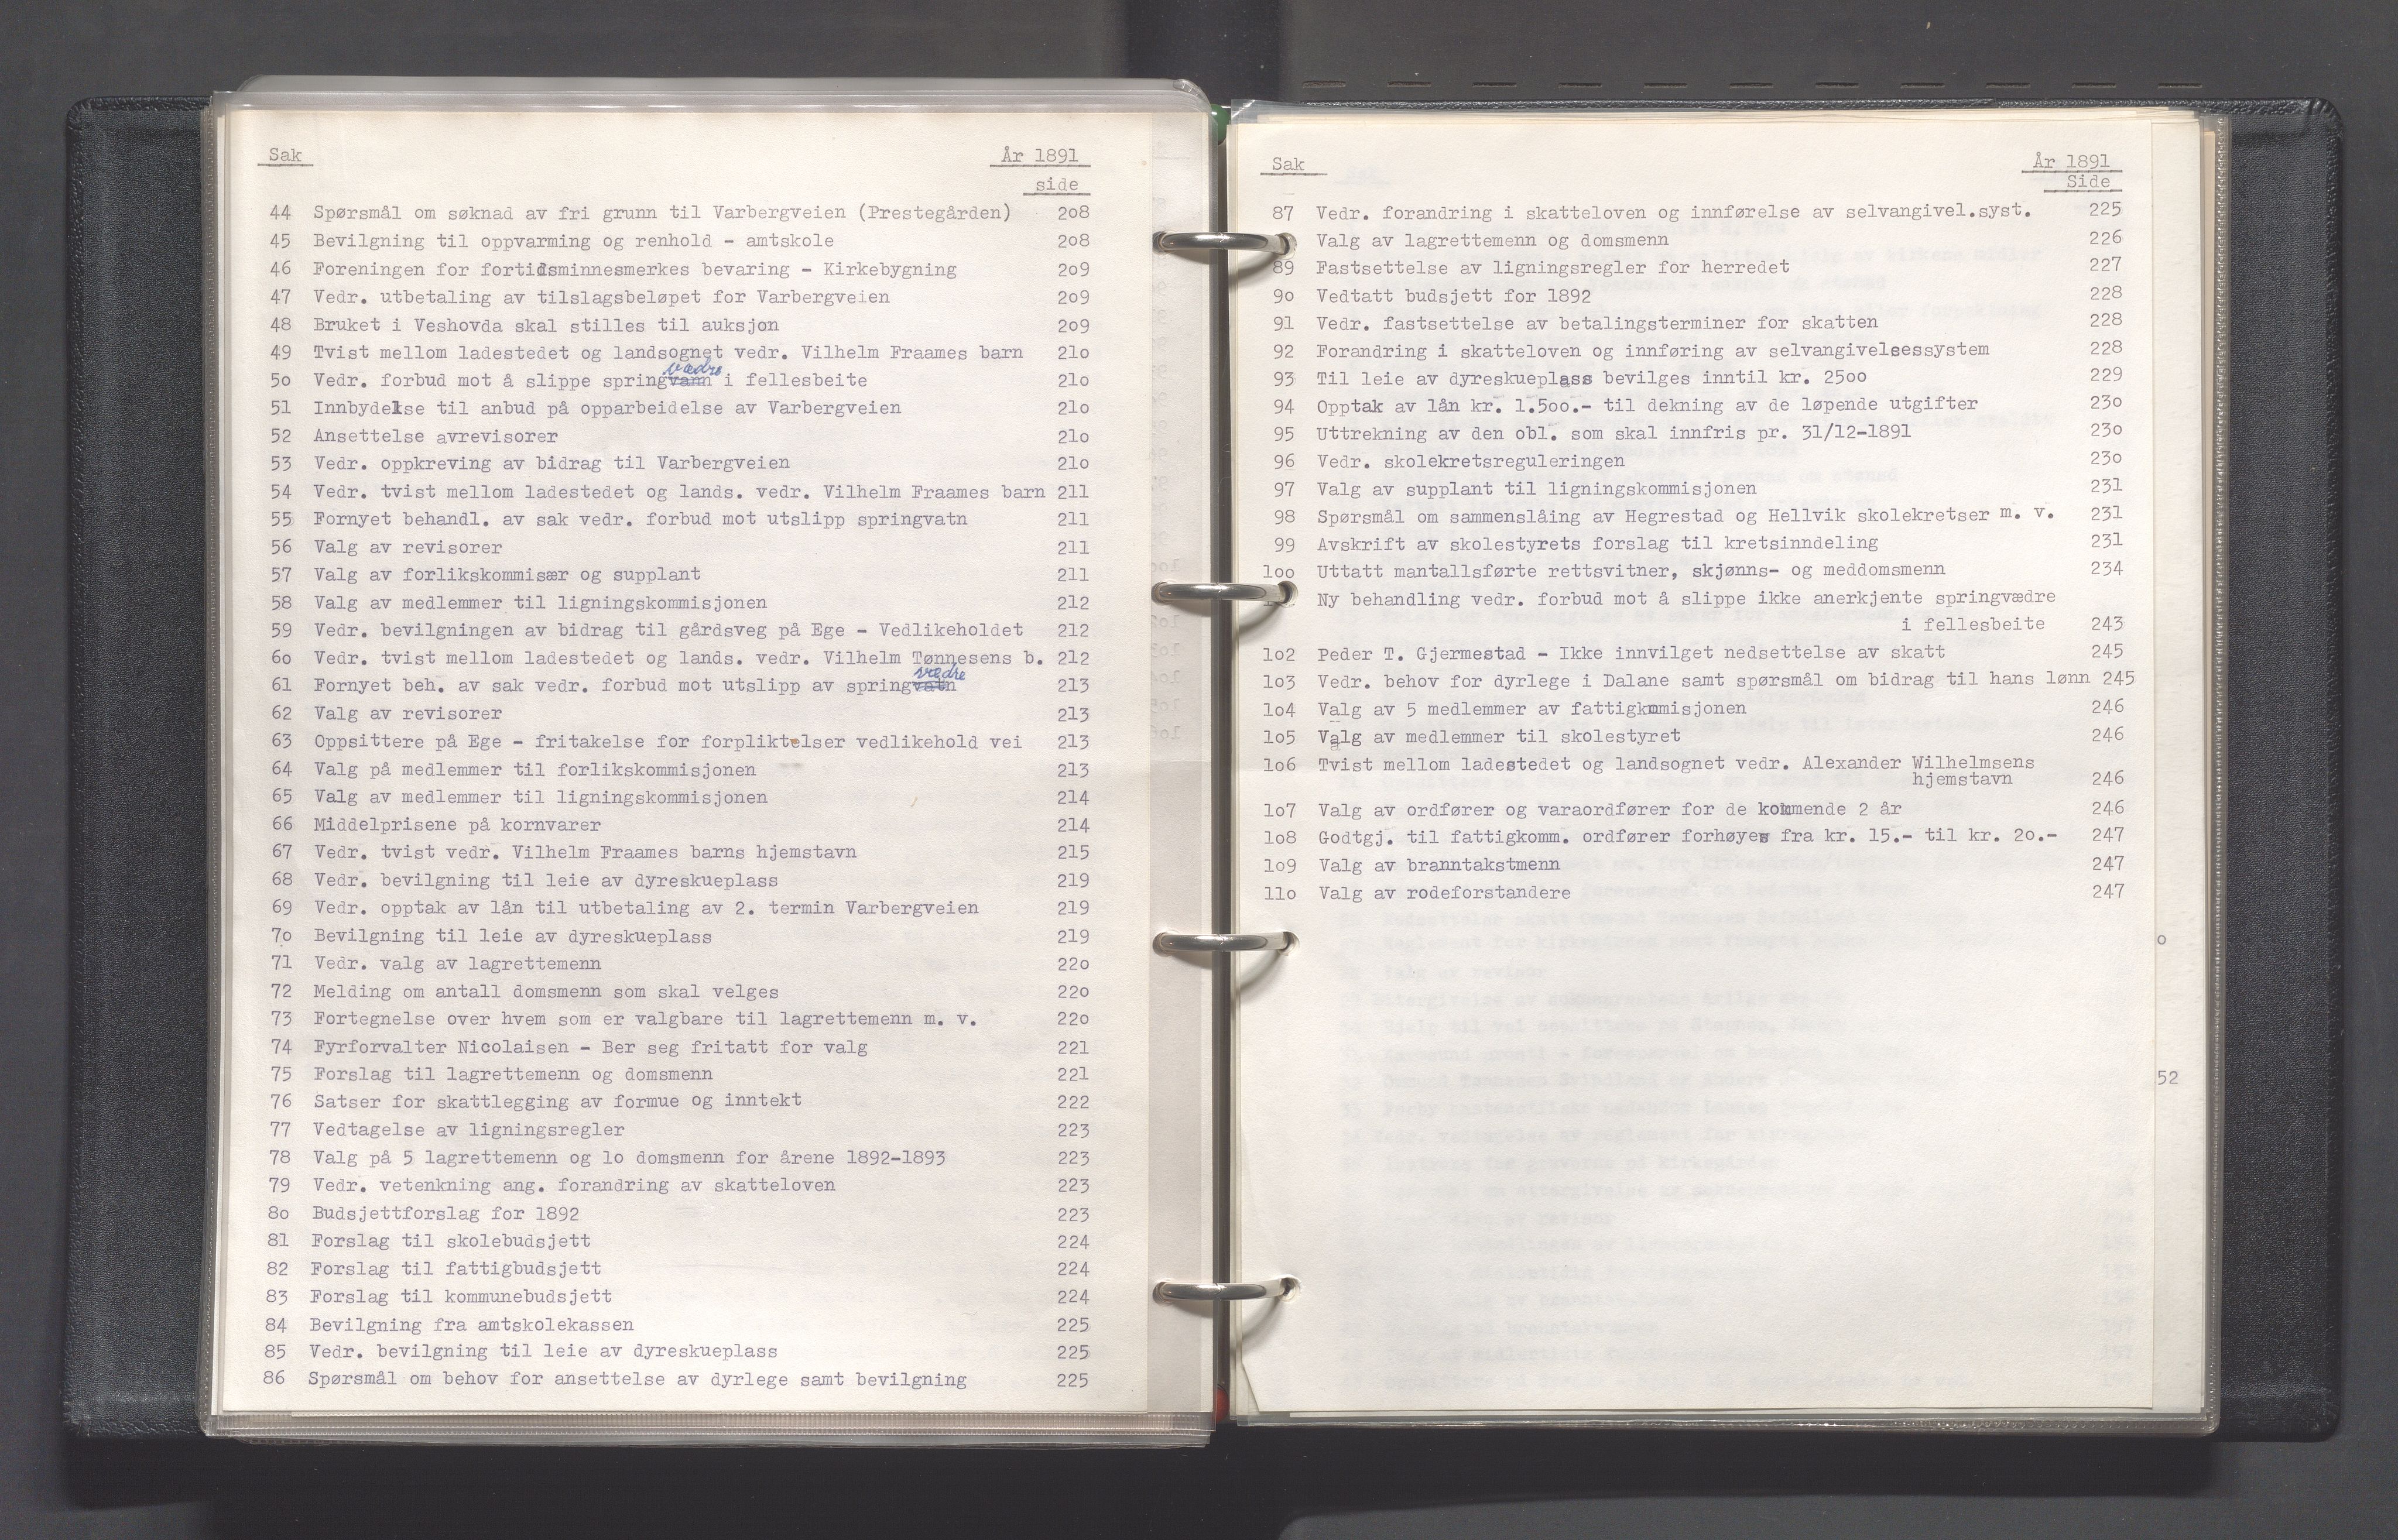 Sak År 1891
side
44 Spørsmål om søknad av fri grunn til Varbergveien (Prestegården) 2o8
45 Bevilgning til oppvarming og renhold - amtskole 2o8
46 Foreningen for fortidsminnesmerkes bevaring - Kirkebygning 2o9
47 Vedr. utbetaling av tilslagsbeløpet for Varbergveien 2o9
48 Bruket i Veshovda skal stilles til auksjon 2o9
49 Tvist mellom ladestedet og landsognet vedr. Vilhelm Fraames barn 21o
vædre
5o Vedr. forbud mot å slippe springvann i fellesbeite 21o
51 Innbydelse til anbud på opparbeidelse av Varbergveien 21o
52 Ansettelse avrevisorer 21o
53 Vedr. oppkreving av bidrag til Varbergveien 21o
54 Vedr. tvist mellom ladestedet og lands. vedr. Vilhelm Fraames barn 211
55 Fornyet behandl. av sak vedr. forbud mot utslipp springvatn 211
56 Valg av revisorer 211
57 Valg av forlikskommisær og supplant 211
58 Valg av medlemmer til ligningskommisjonen 212
59 Vedr. bevilgningen av bidrag til gårdsveg på Ege - Vedlikeholdet 212
6o Vedr. tvist mellom ladestedet og lands. vedr. Vilhelm Tønnesens b. 212
vædre
61 Fornyet beh. av sak vedr. forbud mot utslipp av springvatn 213
62 Valg av revisorer 213
63 Oppsittere på Ege - fritakelse for forpliktelser vedlikehold vei 213
64 Valg på medlemmer til forlikskommisjonen 213
65 Valg av medlemmer til ligningskommisjonen 214
66 Middelprisene på kornvarer 214
67 Vedr. tvist vedr. Vilhelm Fraames barns hjemstavn 215
68 Vedr. bevilgning til leie av dyreskueplass 219
69 Vedr. opptak av lån til utbetaling av 2. termin Varbergveien 219
7o Bevilgning til leie av dyreskueplass 219
71 Vedr. valg av lagrettemenn 22o
72 Melding om antall domsmenn som skal velges 22o
73 Fortegnelse over hvem som er valgbare til lagrettemenn m. v. 22o
74 Fyrforvalter Nicolaisen - Ber seg fritatt for valg 221
75 Forslag til lagrettemenn og domsmenn 221
76 Satser for skattlegging av formue og inntekt 222
77 Vedtagelse av ligningsregler 223
78 Valg på 5 lagrettemenn og lo domsmenn for årene 1892-1893 223
79 Vedr. vetenkning ang. forandring av skatteloven 223
8o Budsjettforslag for 1892 223
81 Forslag til skolebudsjett 224
82 Forslag til fattigbudsjett 224
83 Forslag til kommunebudsjett 224
84 Bevilgning fra amtskolekassen 225
85 Vedr. bevilgning til leie av dyreskueplass 225
86 Spørsmål om behov for ansettelse av dyrlege samt bevilgning 225
Sak År 1891
Side
87 Vedr. forandring i skatteloven og innførelse av selvangivel.syst. 225
Valg av lagrettemenn og domsmenn 226
89 Fastsettelse av ligningsregler for herredet 227
9o Vedtatt budsjett for 1892 228
91 Vedr. fastsettelse av betalingsterminer for skatten 228
92 Forandring i skatteloven og innføring av selvangivelsessystem 228
93 Til leie av dyreskueplass bevilges inntil kr. 25oo 229
94 Opptak av lån kr. 1.5oo.- til dekning av de løpende utgifter 23o
95 Uttrekning av den obl. som skal innfris pr. 31/12-1891 23o
96 Vedr. skolekretsreguleringen 23o
97 Valg av supplant til ligningskommisjonen 231
98 Spørsmål om sammenslåing av Hegrestad og Hellvik skolekretser m. v. 231
99 Avskrift av skolestyrets forslag til kretsinndeling 231
loo Uttatt mantallsførte rettsvitner, skjønns- og meddomsmenn 234
Ny behandling vedr. forbud mot å slippe ikke anerkjente springvædre
i fellesbeite 243
lo2 Peder T. Gjermestad - Ikke innvilget nedsettelse av skatt 245
lo3 Vedr. behov for dyrlege i Dalane samt spørsmål om bidrag til hans lønn 245
lo4 Valg av 5 medlemmer av fattigkmmisjonen 246
lo5 Valg av medlemmer til skolestyret 246
lo6 Tvist mellom ladestedet og landsognet vedr. Alexander Wilhelmsens
hjemstavn 246
lo7 Valg av ordfører og varaordfører for de kommende 2 år 246
lo8 Godtgj. til fattigkomm. ordfører forhøyes fra kr. 15.- til kr. 2o.- 247
lo9 Valg av branntakstmenn 247
llo Valg av rodeforstandere 247
o
52